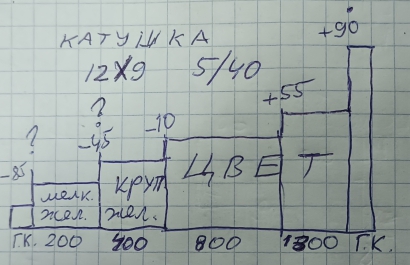 КАТУШКА
12X9 5/40
+90
+55
?
?
-10
-45
-85
ЦВЕТ
мелк. жел.
круп жел.
Г.К. 200 400 800 1300 Г.К.